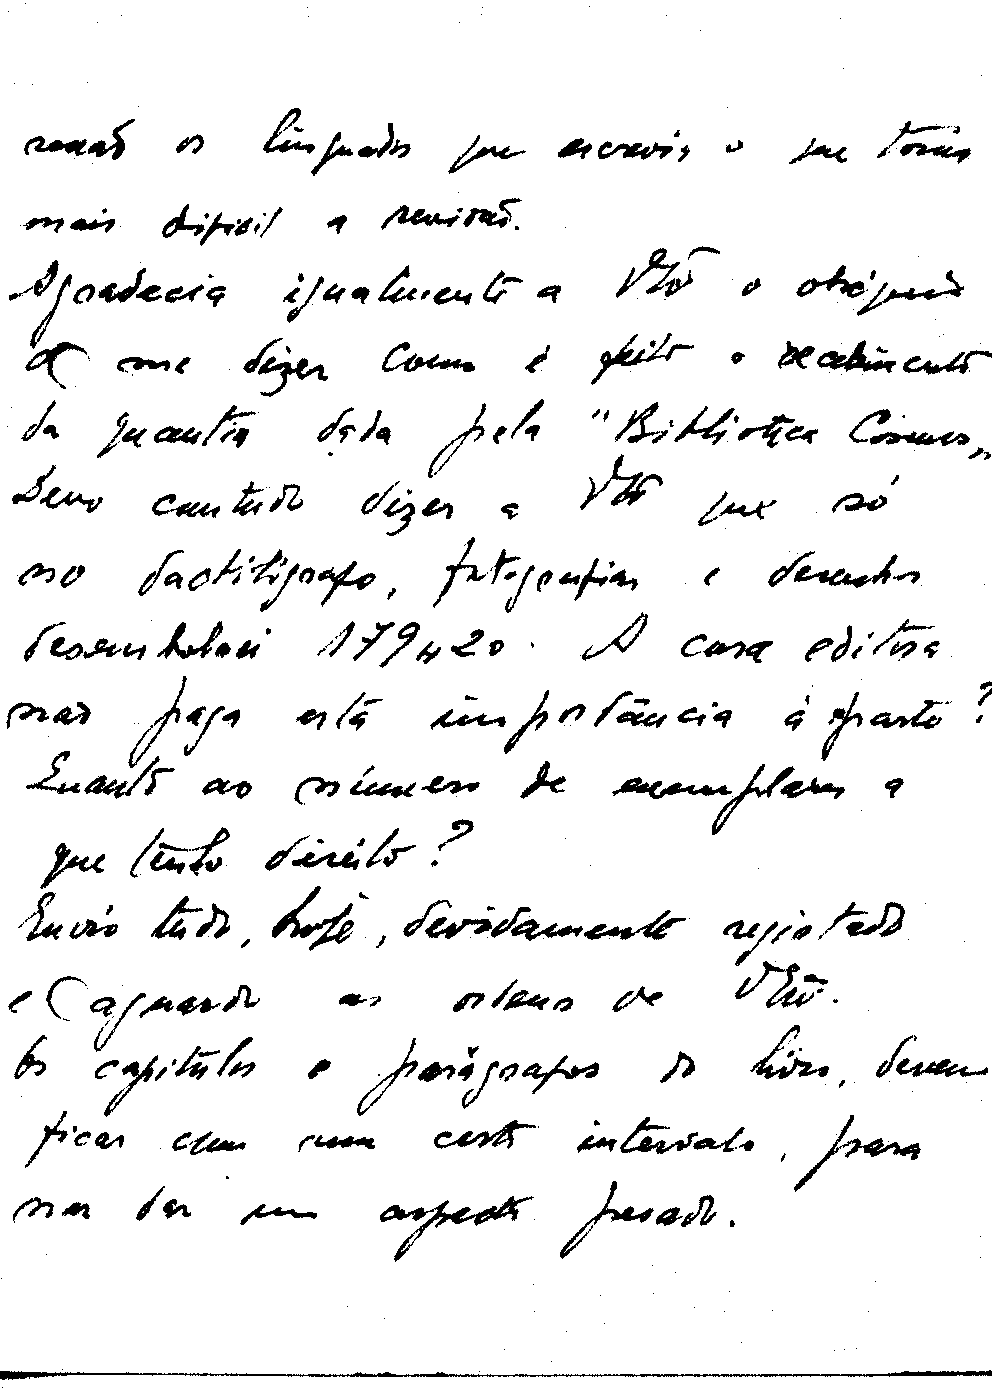 os linguados que escrevi, o que torna
mais dificil a revisão.
Agradecia igualmente a o obséquio
de me dizer como é feito o recebimento
da quantia dada pela "Biblioteca Cosmos"
Devo contudo dizer a que só
no dactilógrafo, fotografias e desenhos
desembolsei 179$20. A casa editora
não paga esta importância à parte?
Quanto ao número de exemplares a
que tenho direito?
Envio tudo, hoje, devidamente registado
e aguardo as ordens de
Os capítulos e parágrafos do livro, devem
ficar com um certo intervalo, para
não dar um aspecto pesado.